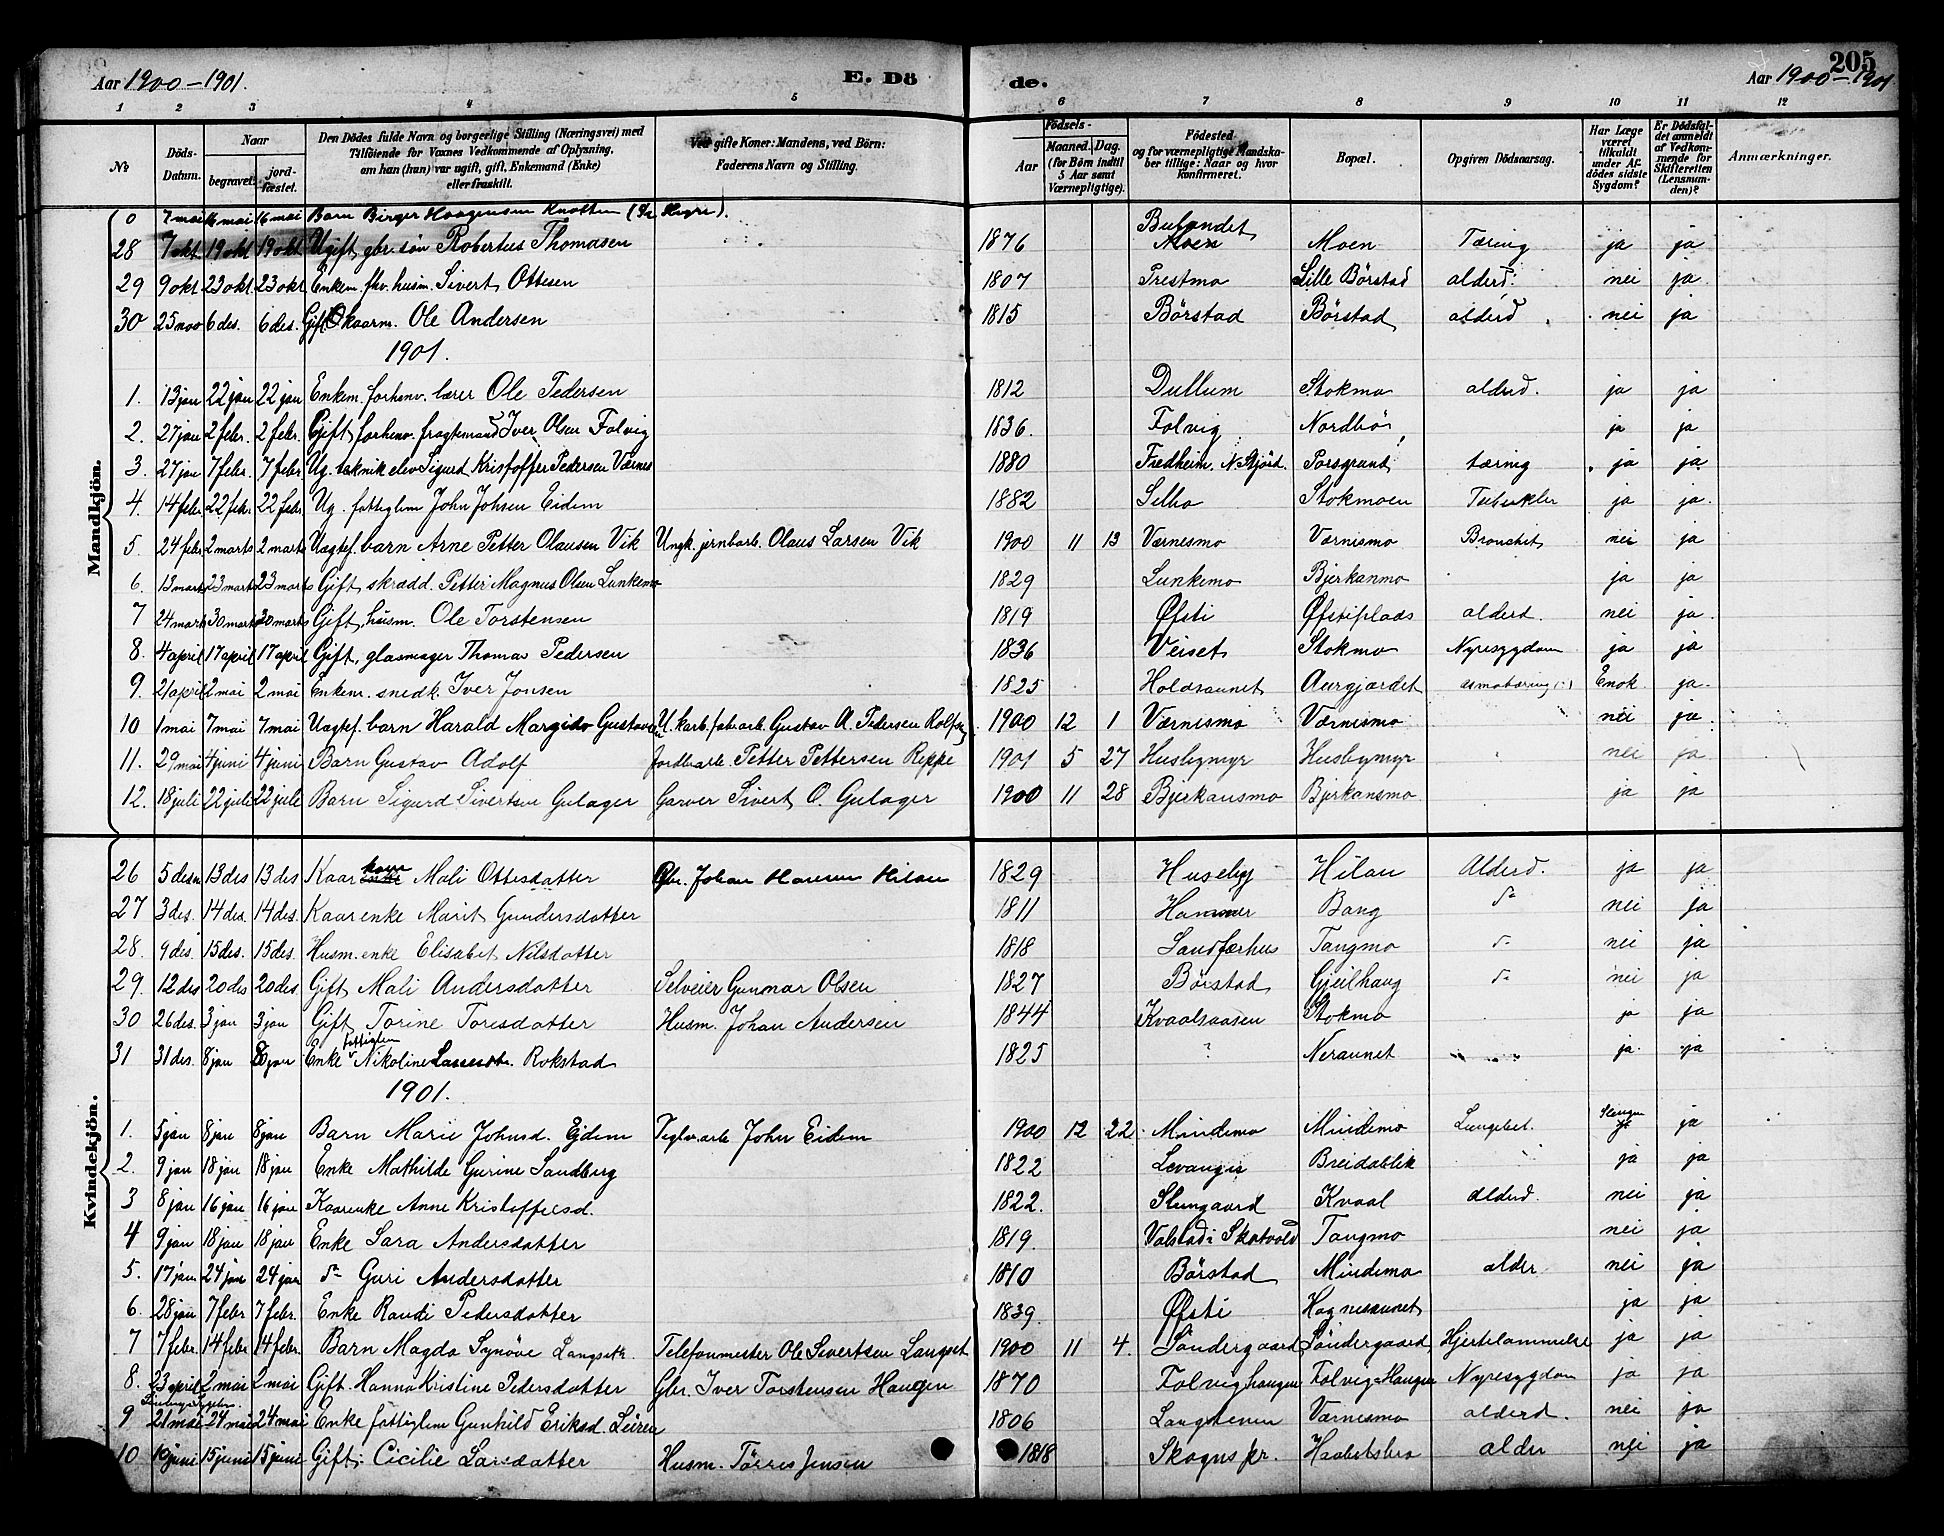 Aar 1900-1901. E. Dö de. Aar 1900-1901 205
1 2 3 4 5 6 7 8 9 10 11 12
№ Döds-Datum. Naar begravet. jord-fæstet. Den Dödes fulde Navn og borgerlige Stilling (Næringsvei) med Tilföiende for Voxnes Vedkommende af Oplysning. om han (hun) var ugift, gift, Enkemand (Enke) eller fraskilt. Ved gifte Koner: Mandens, ved Börn: Faderens Navn og Stilling. Födsels- Aar Maaned. Dag. (for Börn indtil 5 Aar samt Værnepligtige). Födested og for værnepligtige Mandskaber tillige: Naar og hvor konfirmeret. Bopæl. Opgiven Dödsaarsag. Har Læge været tilkaldt under Afdödes sidste Sygdom? Er Dödsfaldet anmeldt af Vedkommende for Skifteretten (Lensmanden)? Anmærkninger.
Mandkjön.
0 7 mai 16 mai 16 mai Barn Birger Haagensen Knotten (s/z Hegre).
28 7 okt 19 okt 19 okt Ugift gbr. søn Robertus Thomasen 1876 Moen Moen Tæring ja ja
29 9 okt 23 okt 23 okt Enkem. fhv. husm. Sivert Ottesen 1807 Prestmo Lille Börstad alderd. nei ja
30 25 nov 6 des. 6 des. Gift Kaarm. Ole Andersen 1815 Börstad Börstad alderd nei ja
1901.
1. 13 jan 22 jan 22 jan Enkem. forhenv. lærer Ole Pedersen 1812 Dullum Stokmo alderd. ja ja
2. 27 jan 2 febr. 2 febr. Gift forhenv. fragtemand Iver Olsen Folvig 1836. Folvig Nordbö ja ja
3. 27 jan 7 febr. 7 febr Ug. teknik elev Sigurd Kristoffer Pedersen Værnes 1880 Fredheim, N. Stjörd. Porsgrund tæring ja ja
4. 14 febr 22 febr. 22 febr Ug. fattiglem John Johsen Eidem 1882 Selbo Stokmoen ja ja.
5. 24 febr 2 marts 2 marts Uagtef. barn Arne Petter Olausen Vik Ungk. jernbarb. Olaus Larsen Vik 1900 11 13 Værnesmo Værnesmo Bronchit nei ja
6. 13 marts 23 marts 23 marts Gift skrædd. Petter Magnus Olsen Lunkemo 1829 Lunkemo Bjerkanmo ja ja
7 24 marts 30 marts 30 marts Gift, husm. Ole Torstensen 1819 Øfsti Øfstiplads alderd. nei ja
8. 4 april 17 april 17 april Gift, glasmager Thomas Pedersen 1836 Veiset Stokmo Nyresygdom ja ja
9. 21 april 2 mai 2 mai Enkem. snedk. Iver Jonsen 1825 Holdsaunet Aurgjærdet ja
10 1 mai 7 mai 7 mai Uagtef. barn Harald Margido Gustavsen U. karb. fabarb. Gustav A. Pedersen 1900 12 1 Værnesmo Værnesmo nei ja
11. 29 mai 4 juni 4 juni Barn Gustav Adolf Jordbarb. Petter Pettersen Reppe 1901 5 27 Husbymyr Husbymyr nei ja
12. 18 juli 22 juli 22 juli Barn Sigurd Sivertsen Gulager Garver Sivert O. Gulager 1900 11 28 Bjerkansmo Bjerkansmo ja ja
Kvindekjön.
26 5 desm 13 des 13 des Kaarkone Mali Ottesdatter Gbr. Johan Hansen Hilan 1829 Huseby Hilan Alderd. ja ja
27 3 des. 14 des. 14 des. Kaarenke Marit Gundersdatter 1811 Hammer Bang do nei ja
28. 9 des. 15 des. 15 des. Husm. enke Elisabet Nilsdatter 1818 Sandfærhus Tangmo do nei ja
29. 12 des 20 des 20 des. Gift Mali Andersdatter Selveier Gunnar Olsen 1827 Börstad Gjeilhaug do nei ja
30 26 des. 3 jan 3 jan Gift Torine Toresdatter Husm. Johan Andersen 1844 Kvaalsaasen Stokmo ja ja
31 31 des. 8 jan 8 jan Enke fattiglem Nikoline Larsdt. Rokstad 1825 ? Neraunet ja ja
1901.
1. 5 jan 8 jan 8 jan Barn Marie Johnsd. Ejdem Teglv.arb John Eidem 1900 12 22 Mindemo Mindemo ja
2. 9 jan 18 jan 18 jan Enke Mathilde Gurine Sandberg 1822 Levanger Breidablik ja ja
3 8 jan 16 jan 16 jan Kaarenke Anne Kristoffersd. 1822. Stengaard Kvaal alderd. nei ja
4 9 jan 18 jan 18 jan Enke Sara Andersdatter 1819. Valstad i Skatvold Tangmo nei ja
5. 17 jan 24 jan 24 jan do Guri Andersdatter 1810 Börstad Mindemo alder nei ja
6. 28 jan 7 febr 7 febr. Enke Randi Pedersdatter 1839. Øfsti Hognesaunet ja ja
7 7 febr. 14 febr 14 febr. Barn Magda Synöve Langseth. Telefonmester Ole Sivertsen Langset 1900 11 4. Söndergaard Söndergaard Hjertelammelse ja ja
8. 23 april 2 mai 2 mai Gift. Hanna Kristine Pedersdatter Gbr. Iver Torstensen Haugen 1870 Folvighaugen Folvig-Haugen Nyresygdom ja ja
9 21 mai 24 mai 24 mai Enke fattiglem Gunhild Eriksd. Leiren 1806 Langsteinen Værnesmo alderd. nei ja
10 10 juni 15 juni 15 juni Gift: Cicilie Larsdatter Husm. Törris Jensen 1818 Skogns pr. alder nei ja